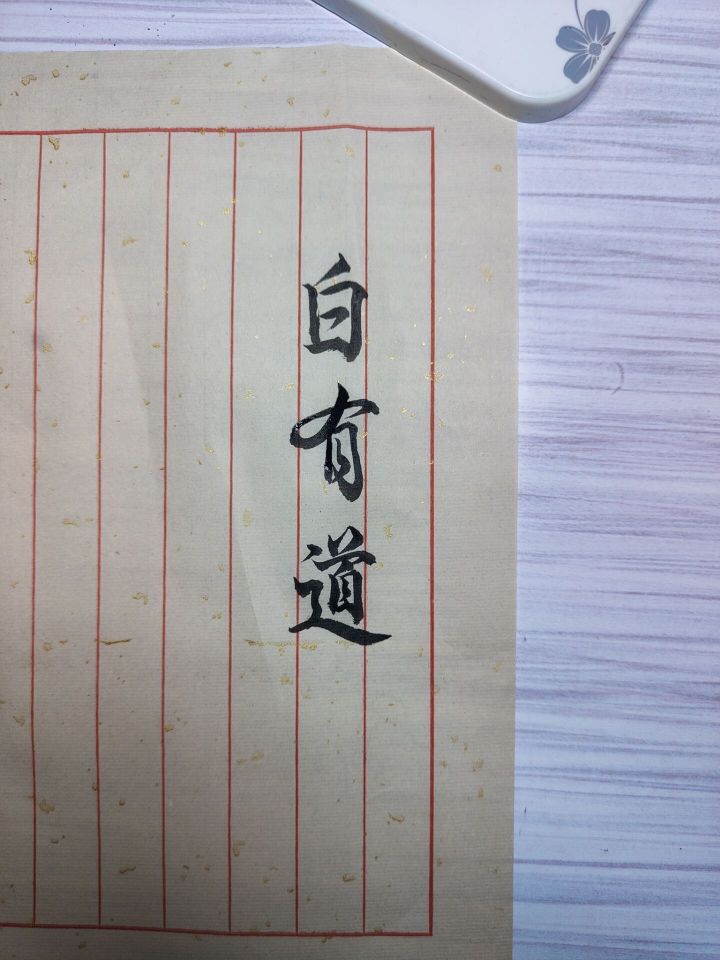 自有道